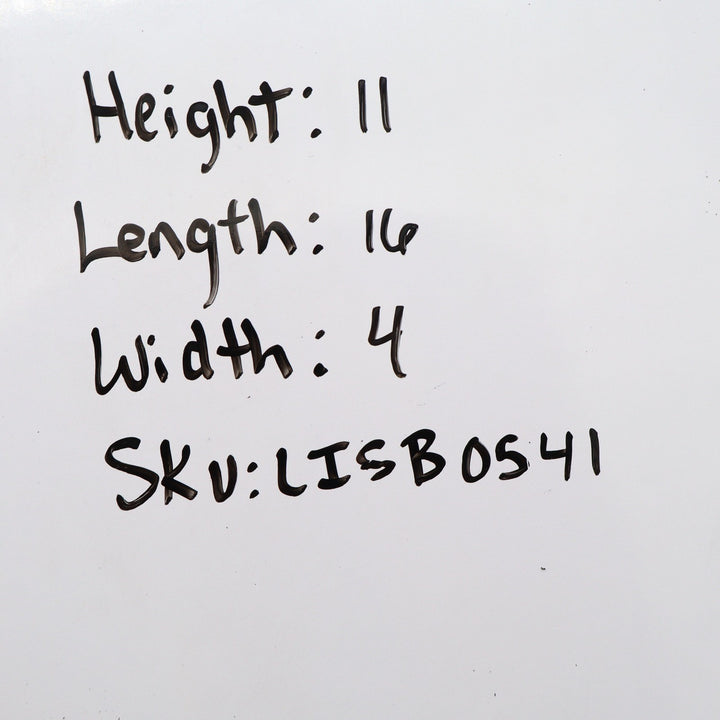 Height: 11
Length: 16
Width: 4
SKU: LISB0541